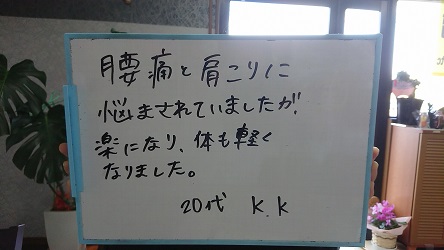 腰痛と肩こりに
悩まされていましたが!
楽になり、体も軽く
なりました。
20代 K.K